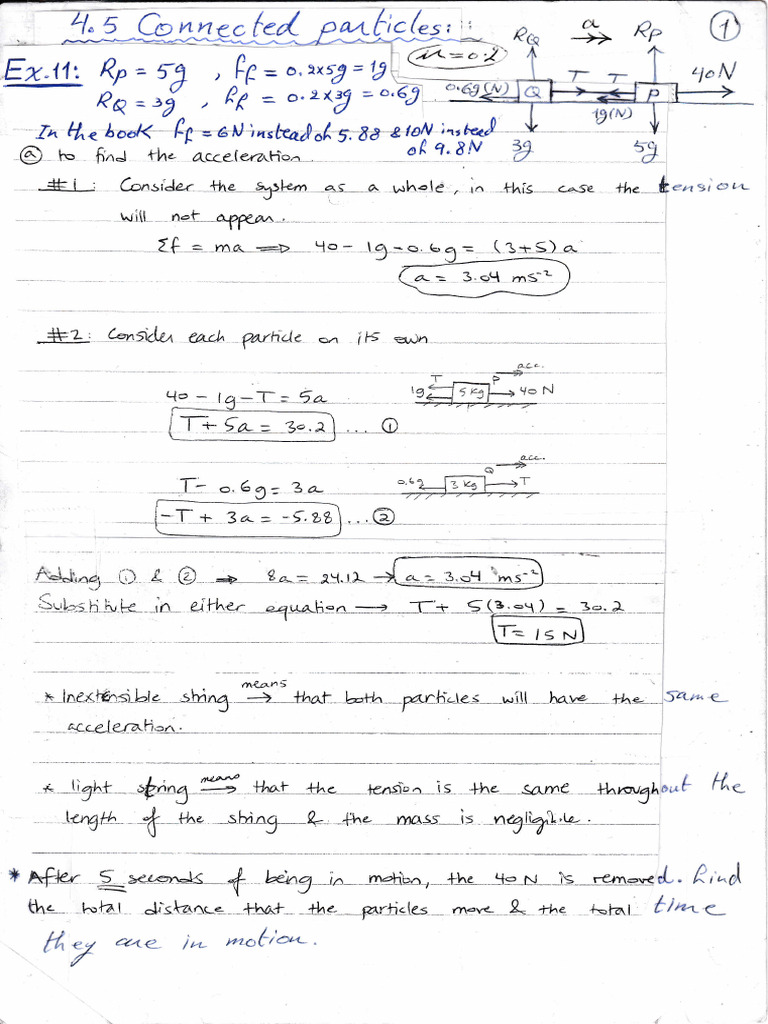 4.5 Connected particles:
①
Ex.11: Rp = 5g , Ff = 0.2x5g = 1g
μ = 0.2
RQ = 3g , Ff = 0.2 x 3g = 0.6g
In the book Ff = 6N instead of 5.88 & 10N instead
of 9.8N
RQ a Rp
0.6g(N) Q T T P 40N
1g(N)
3g 5g
ⓐ to find the acceleration.
#1: Consider the system as a whole, in this case the tension
will not appear.
Σf = ma ⟹ 40 - 1g - 0.6g = (3+5)a
a = 3.04 ms⁻²
#2: Consider each particle on its own
acc.
T P
1g 5 kg 40 N
40 - 1g - T = 5a
T + 5a = 30.2 ... ①
acc.
Q
0.6g 3 kg T
T - 0.6g = 3a
-T + 3a = -5.88 ... ②
Adding ① & ② → 8a = 24.12 → a = 3.04 ms⁻²
Substitute in either equation → T + 5(3.04) = 30.2
T = 15 N
* Inextensible string means → that both particles will have the same
acceleration.
* light string means → that the tension is the same throughout the
length of the string & the mass is negligible.
* After 5 seconds of being in motion, the 40 N is removed. find
the total distance that the particles move & the total time
they are in motion.